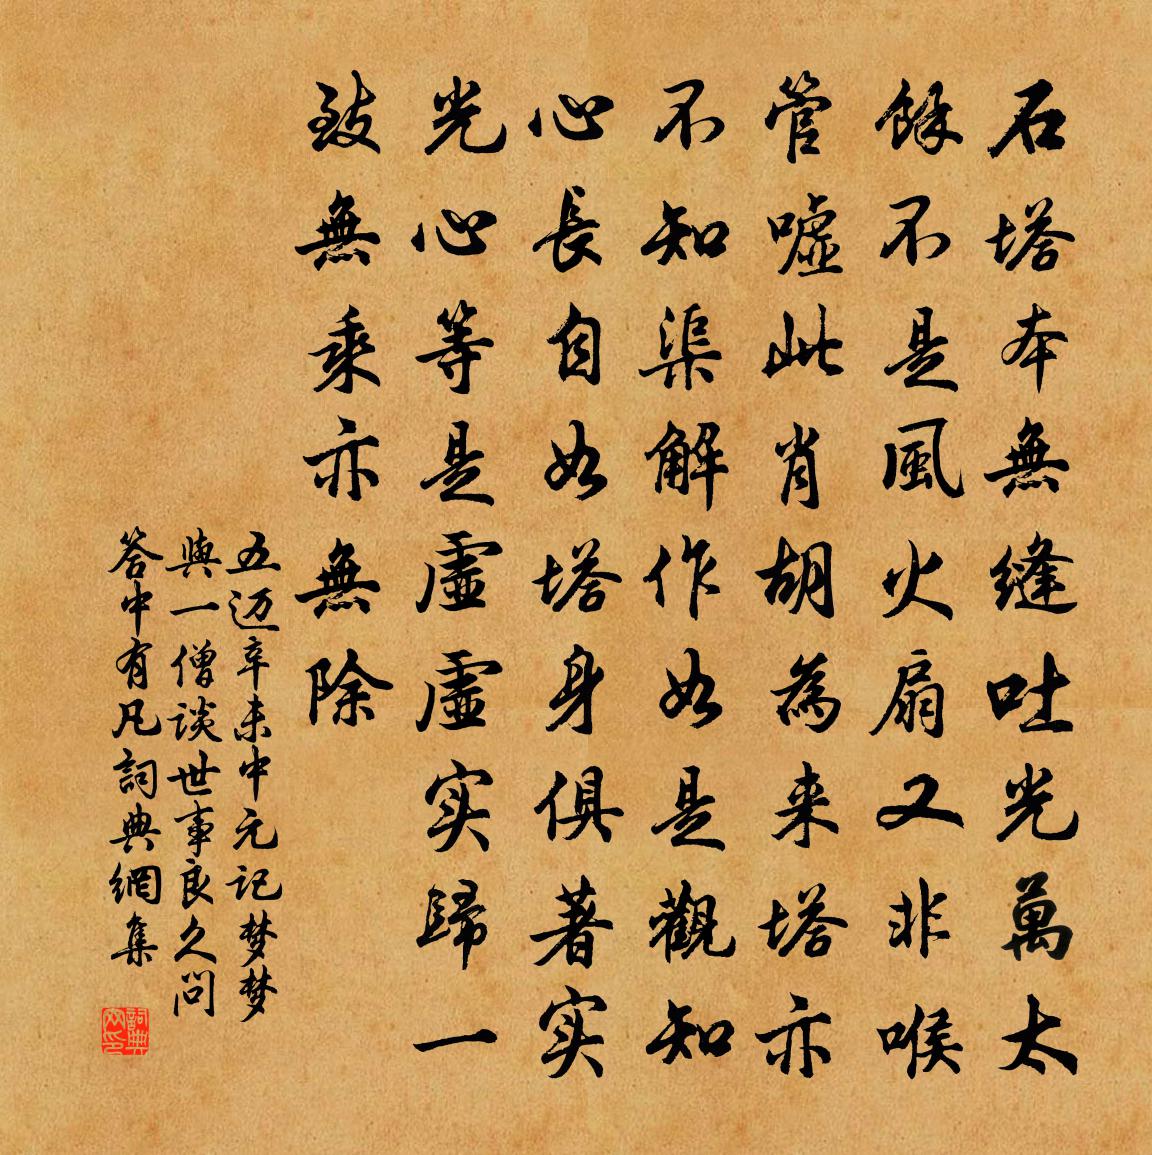 石塔本無縫吐光萬太
餘不是風火扇又非喉
管噓此肖胡為来塔亦
不知渠解作如是觀知
心長自如塔身俱著实
光心等是虛虛实歸一
致無乘亦無除
五迈辛未中元记梦梦
與一僧谈世事良久问
答中有凡詞典網集